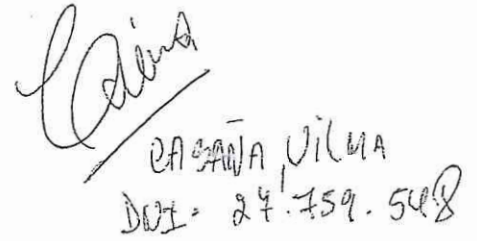 CASAÑA, VILMA
DNI- 27.759.548